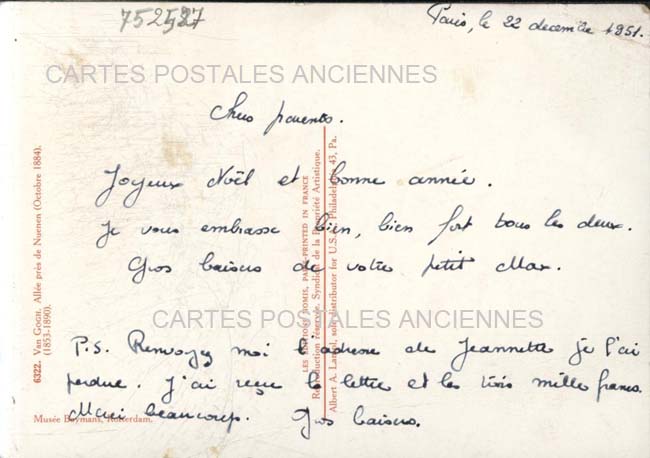 752527
Paris, le 22 decembre 1951.
CARTES POSTALES ANCIENNES
Chers parents.
Joyeux Noël et bonne année.
Je vous embrasse bien, bien fort tous les deux.
Gros baisers de votre petit Max.
CARTES POSTALES ANCIENNES
P.S. Renvoyez moi l'adresse de Jeannette je l'ai
perdue. J'ai reçu la lettre et les trois mille francs.
Merci beaucoup. Gros baisers.
6322. VAN GOGH. Allée près de Nuenen (Octobre 1884).
(1853-1890).
Musée Boymans, Rotterdam.
LES ÉDITIONS NOMIS, PARIS-PRINTED IN FRANCE
Reproduction réservée. Syndicat de la Propriété Artistique.
Albert A. sole distributor for U.S.A. Philadelphia 43, Pa.